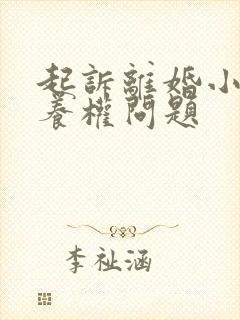 起訴離婚小
養權問題
李祉涵